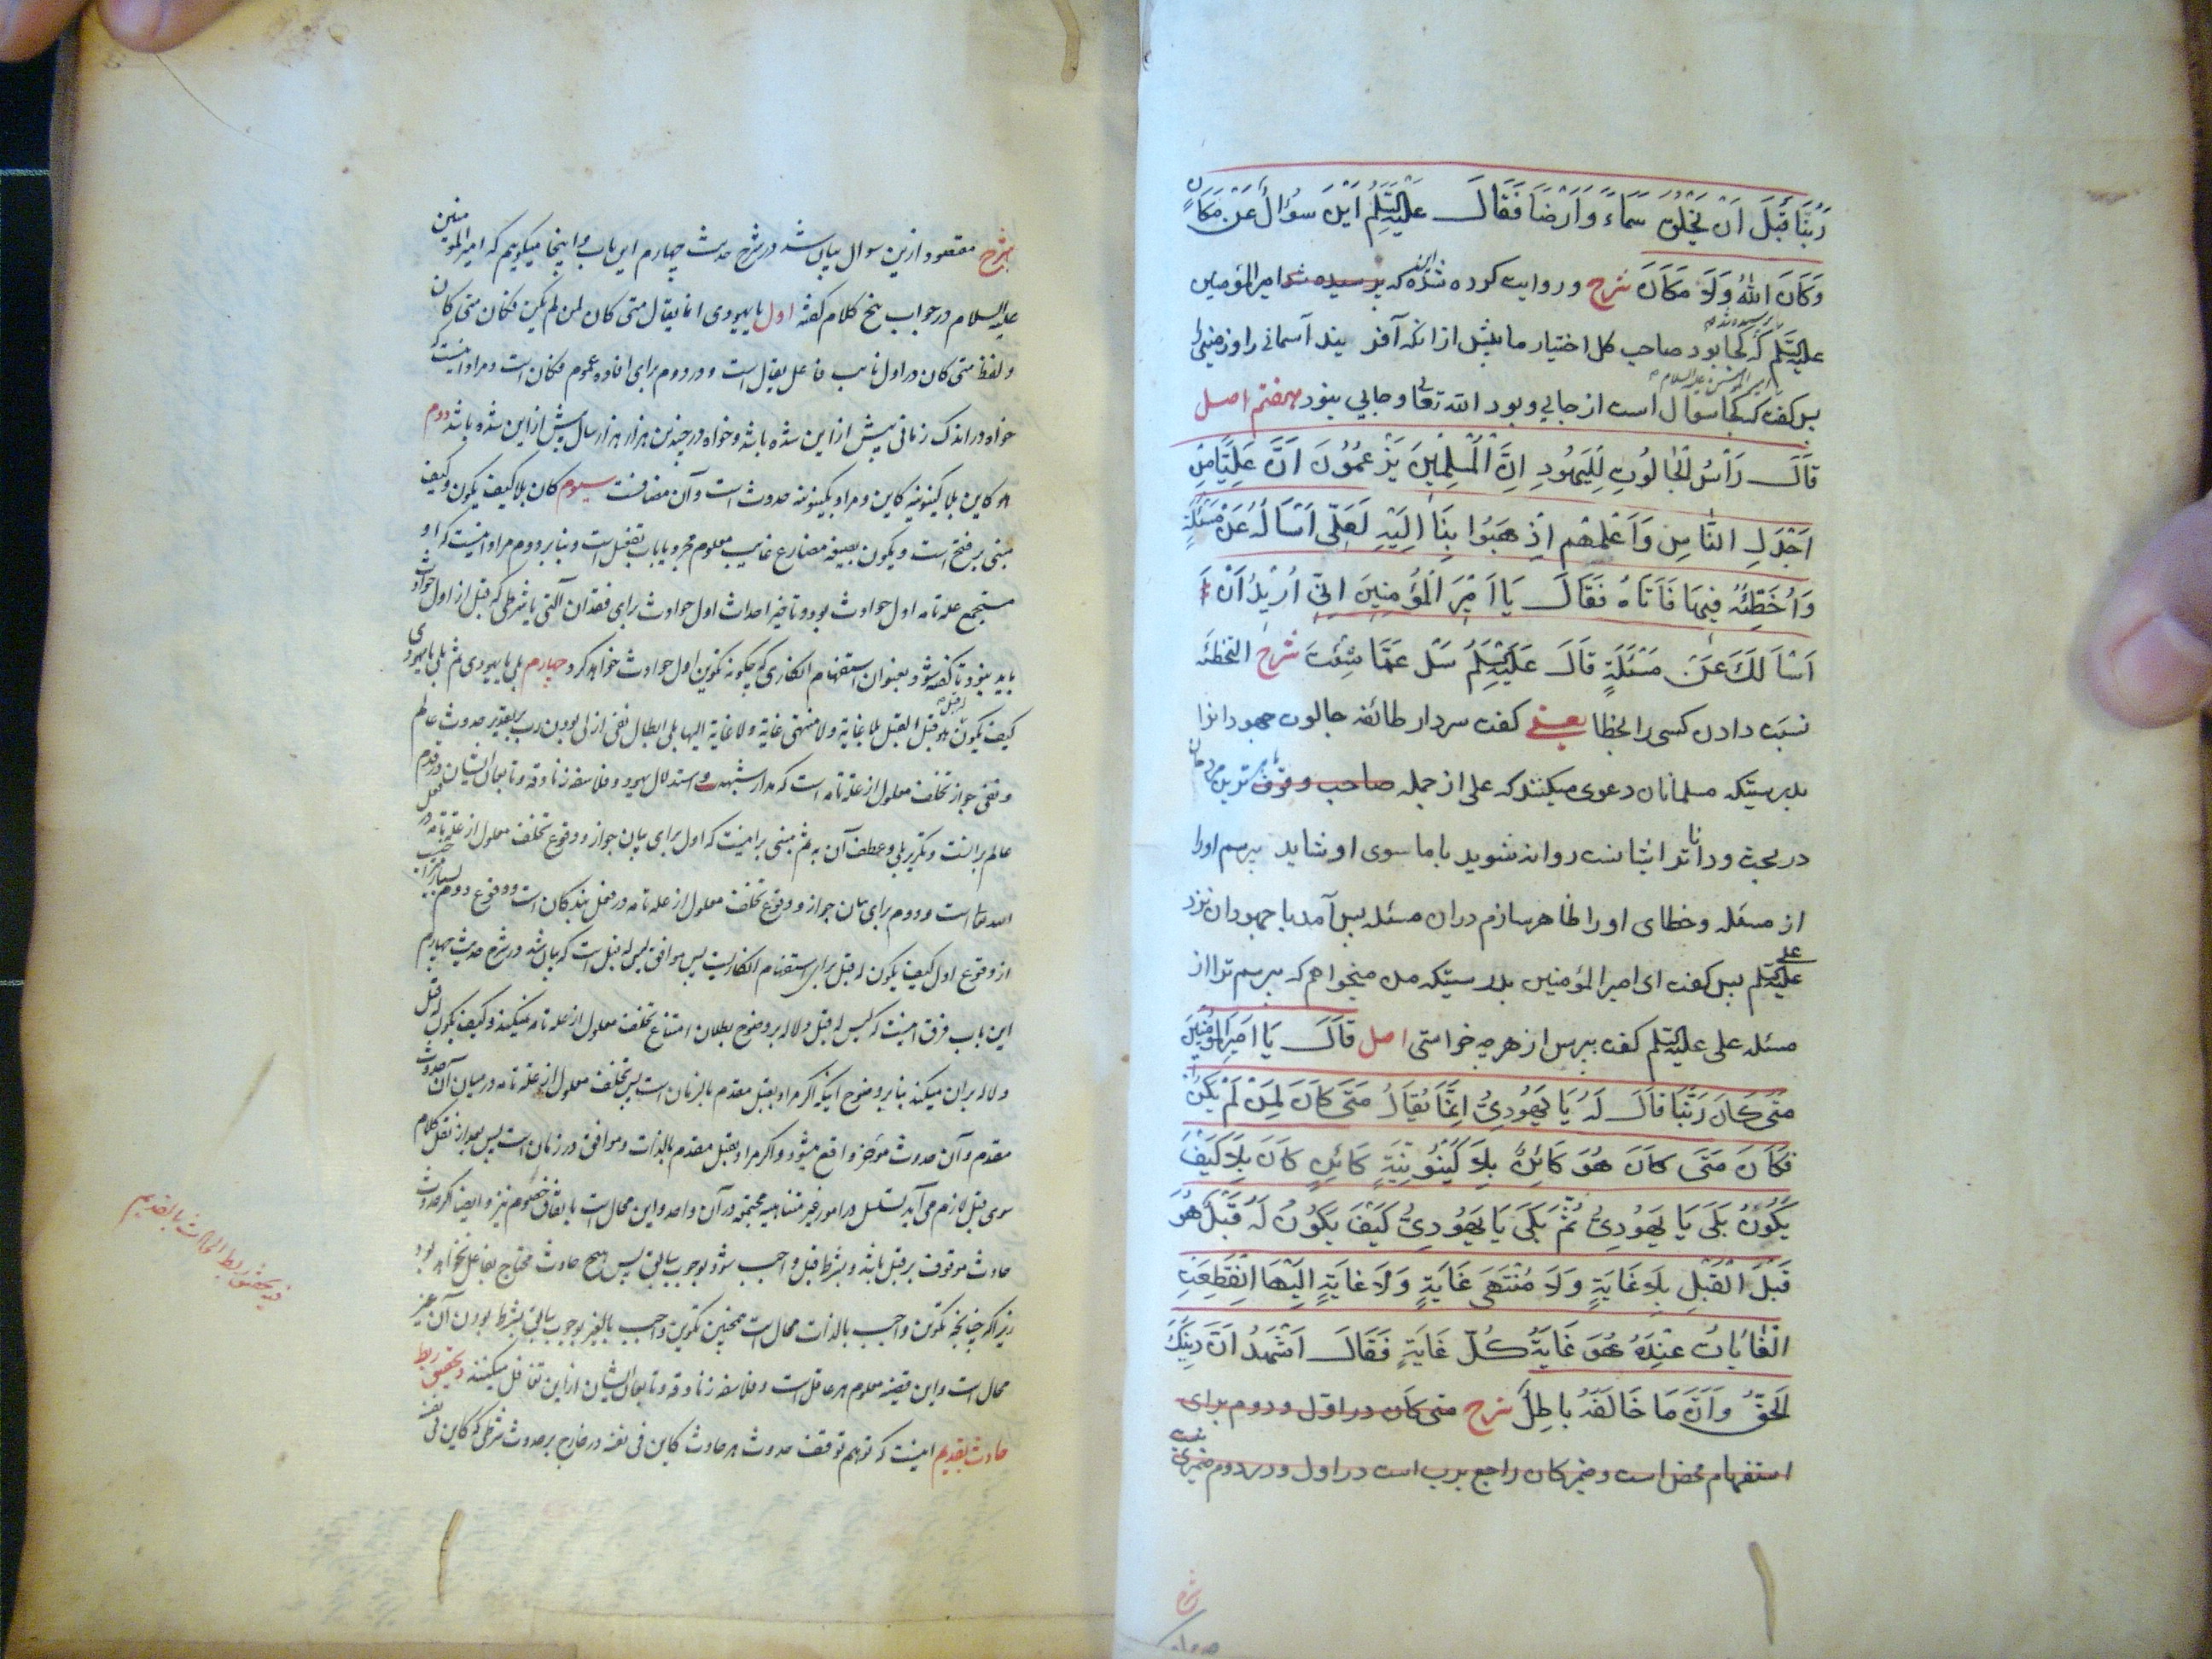 رَبُّنَا قَبْلَ اَنْ يَخْلُقَ سَمَاءً وَاَرْضًا فَقَالَ عَلَيْهِ السَّلَمُ اَيْنَ سُؤَالٌ عَنْ مَكَانٍ
وَكَانَ اللهُ وَلَا مَكَانَ شرح و روایت کرده شده که پرسیده شد امیر المؤمنین
علیه السلم که کجا بود صاحب کل اختیار ما پیش از آنکه آفریند آسمانی را و زمینی را
پس گفت که کجا سوال است از جایی و بود الله تعالی و جایی نبود هفتم اصل
قَالَ رَأْسُ الْجَالُوتِ لِلْيَهُودِ اِنَّ الْمُسْلِمِينَ يَزْعُمُونَ اَنَّ عَلِيًّا مِنْ
اَجْدَلِ النَّاسِ وَاَعْلَمِهِمْ اِذْهَبُوا بِنَا اِلَيْهِ لَعَلِّي اَسْاَلُهُ عَنْ مَسْئَلَةٍ
وَاُخَطِّئُهُ فِيهَا فَاَتَاهُ فَقَالَ يَا اَمِيرَ الْمُؤْمِنِينَ اِنِّي اُرِيدُ اَنْ
اَسْاَلَكَ عَنْ مَسْئَلَةٍ قَالَ عَلَيْهِ السَّلَمُ سَلْ عَمَّا شِئْتَ شرح التخطئه
نسبت دادن کسی را بخطا یعنی گفت سردار طائفه جالوت جهودانرا
بدرستیکه مسلمانان دعوی میکنند که علی از جمله صاحب وقوف ترین
در بحث و داناترایشانست روانه شوید با ما سوی او شاید پرسم اورا
از مسئله و خطای او را ظاهر سازم دران مسئله پس آمد با جهودان نزد
علی علیه السلم پس گفت ای امیر المؤمنین بدرستیکه من میخواهم که پرسم ترا از
مسئله علی علیه السلم گفت بپرس از هر چه خواستی اصل قَالَ يَا اَمِيرَ الْمُؤْمِنِينَ
مَتَى كَانَ رَبُّنَا قَالَ لَهُ يَا يَهُودِيُّ اِنَّمَا يُقَالُ مَتَى كَانَ لِمَنْ لَمْ يَكُنْ
فَكَانَ مَتَى كَانَ هُوَ كَائِنٌ بِلَا كَيْنُونِيَّةِ كَائِنٍ كَانَ بِلَا كَيْفَ
يَكُونُ بَلَى يَا يَهُودِيُّ ثُمَّ بَلَى يَا يَهُودِيُّ كَيْفَ يَكُونُ لَهُ قَبْلٌ هُوَ
قَبْلَ الْقَبْلِ بِلَا غَايَةٍ وَلَا مُنْتَهَى غَايَةٍ وَلَا غَايَةٍ اِلَيْهَا انْقَطَعَتِ
الْغَايَاتُ عِنْدَهُ هُوَ غَايَةُ كُلِّ غَايَةٍ فَقَالَ اَشْهَدُ اَنَّ دِينَكَ
الْحَقُّ وَاَنَّ مَا خَالَفَهُ بَاطِلٌ شرح متی کان در اول و دوم برای
استفهام محض است و ضمیر کان راجع برب است در اول و در دوم
شرح مقصود ازین سوال بیان شد در شرح حدیث چهارم این باب و اینجا میگوییم که امیر المؤمنین
علیه السلام در جواب پنج کلام گفته اول یا یهودی انما یقال متی کان لمن لم یکن فکان متی کان
و لفظ متی کان در اول نایب فاعل یقال است و در دوم برای افاده عموم فکان است و مراد اینست که
خواه در اندک زمانی پیش از این شده باشد و خواه در چندین هزار هزار سال پیش از این شده باشد دوم
هو کاین بلا کینونیة کاین و مراد بکینونیه حدوث است و آن مضافست سیوم کان بلا کیف یکون و کیف
مبنی بر فتح است و یکون بصیغه مضارع غایب معلوم مجرد یا باب تفعیل است و بنا بر دوم مراد اینست که او
مستجمع علة تامه اول حوادث بود و تاخیر احداث اول حوادث برای فقدان آلتی یا شرطی که قبل از اول حوادث
باید نبود تا گفته شود بعنوان استفهام انکاری که چگونه تکوین اول حوادث خواهد کرد چهارم بلی یا یهودی ثم بلی یا یهودی
کیف یکون له قبل هو قبل القبل بلا غایة و لا منتهی غایة و لا غایة الیها بلی ابطال نفی ازلی بودن رب بر تقدیر حدوث عالم
و نفی جواز تخلف معلول از علة تامه است که مدار شبهه و استدلال یهود و فلاسفه زنادقه و تابعان ایشان در قدم
عالم برانست و تکریر بلی و عطف آن به ثم مبنی بر اینست که اول برای بیان جواز و وقوع تخلف معلول از علة تامه در فعل
الله تعالی است و دوم برای بیان جواز و وقوع تخلف معلول از علة تامه در فعل بندگان است و وقوع دوم
از وقوع اول کیف یکون له قبل برای استفهام انکاریست پس موافق لیس له قبل است که بیان شد در شرح حدیث چهارم
این باب فرق اینست که لیس له قبل دلاله بر وضوح بطلان امتناع تخلف معلول از علة تامه نمیکند و کیف یکون له قبل
دلاله بران میکند بنا بر وضوح اینکه اگر مراد بقبل مقدم بالزمان است پس تخلف معلول از علة تامه در میان آن حدوث
مقدم و آن حدوث مؤخر واقع میشود و اگر مراد بقبل مقدم بالذات و موافق در زمان است پس بعد از نقل کلام
سوی قبل لازم می آید تسلسل در امور غیر متناهیه مجتمعه در آن واحد و این محال است باتفاق خصوم نیز و ایضا اگر حدوث
حادث موقوف بر قبل باشد و بشرط قبل واجب شود بوجوب سابق پس هیچ حادث محتاج بفاعل نخواهد بود
زیرا که چنانچه تکوین واجب بالذات محال است همچنین تکوین واجب بالغیر بوجوب سابق بشرط بودن آن غیر
محال است و این قضیه معلوم هر عاقل است و فلاسفه زنادقه و تابعان ایشان از این تغافل میکنند و تحقیق ربط
حادث بقدیم اینست که توهم توقف حدوث هر حادث کاین فی نفسه در خارج بر حدوث شرطی که کاین فی نفسه
فیه تحقیق ربط الحادث بالقدیم